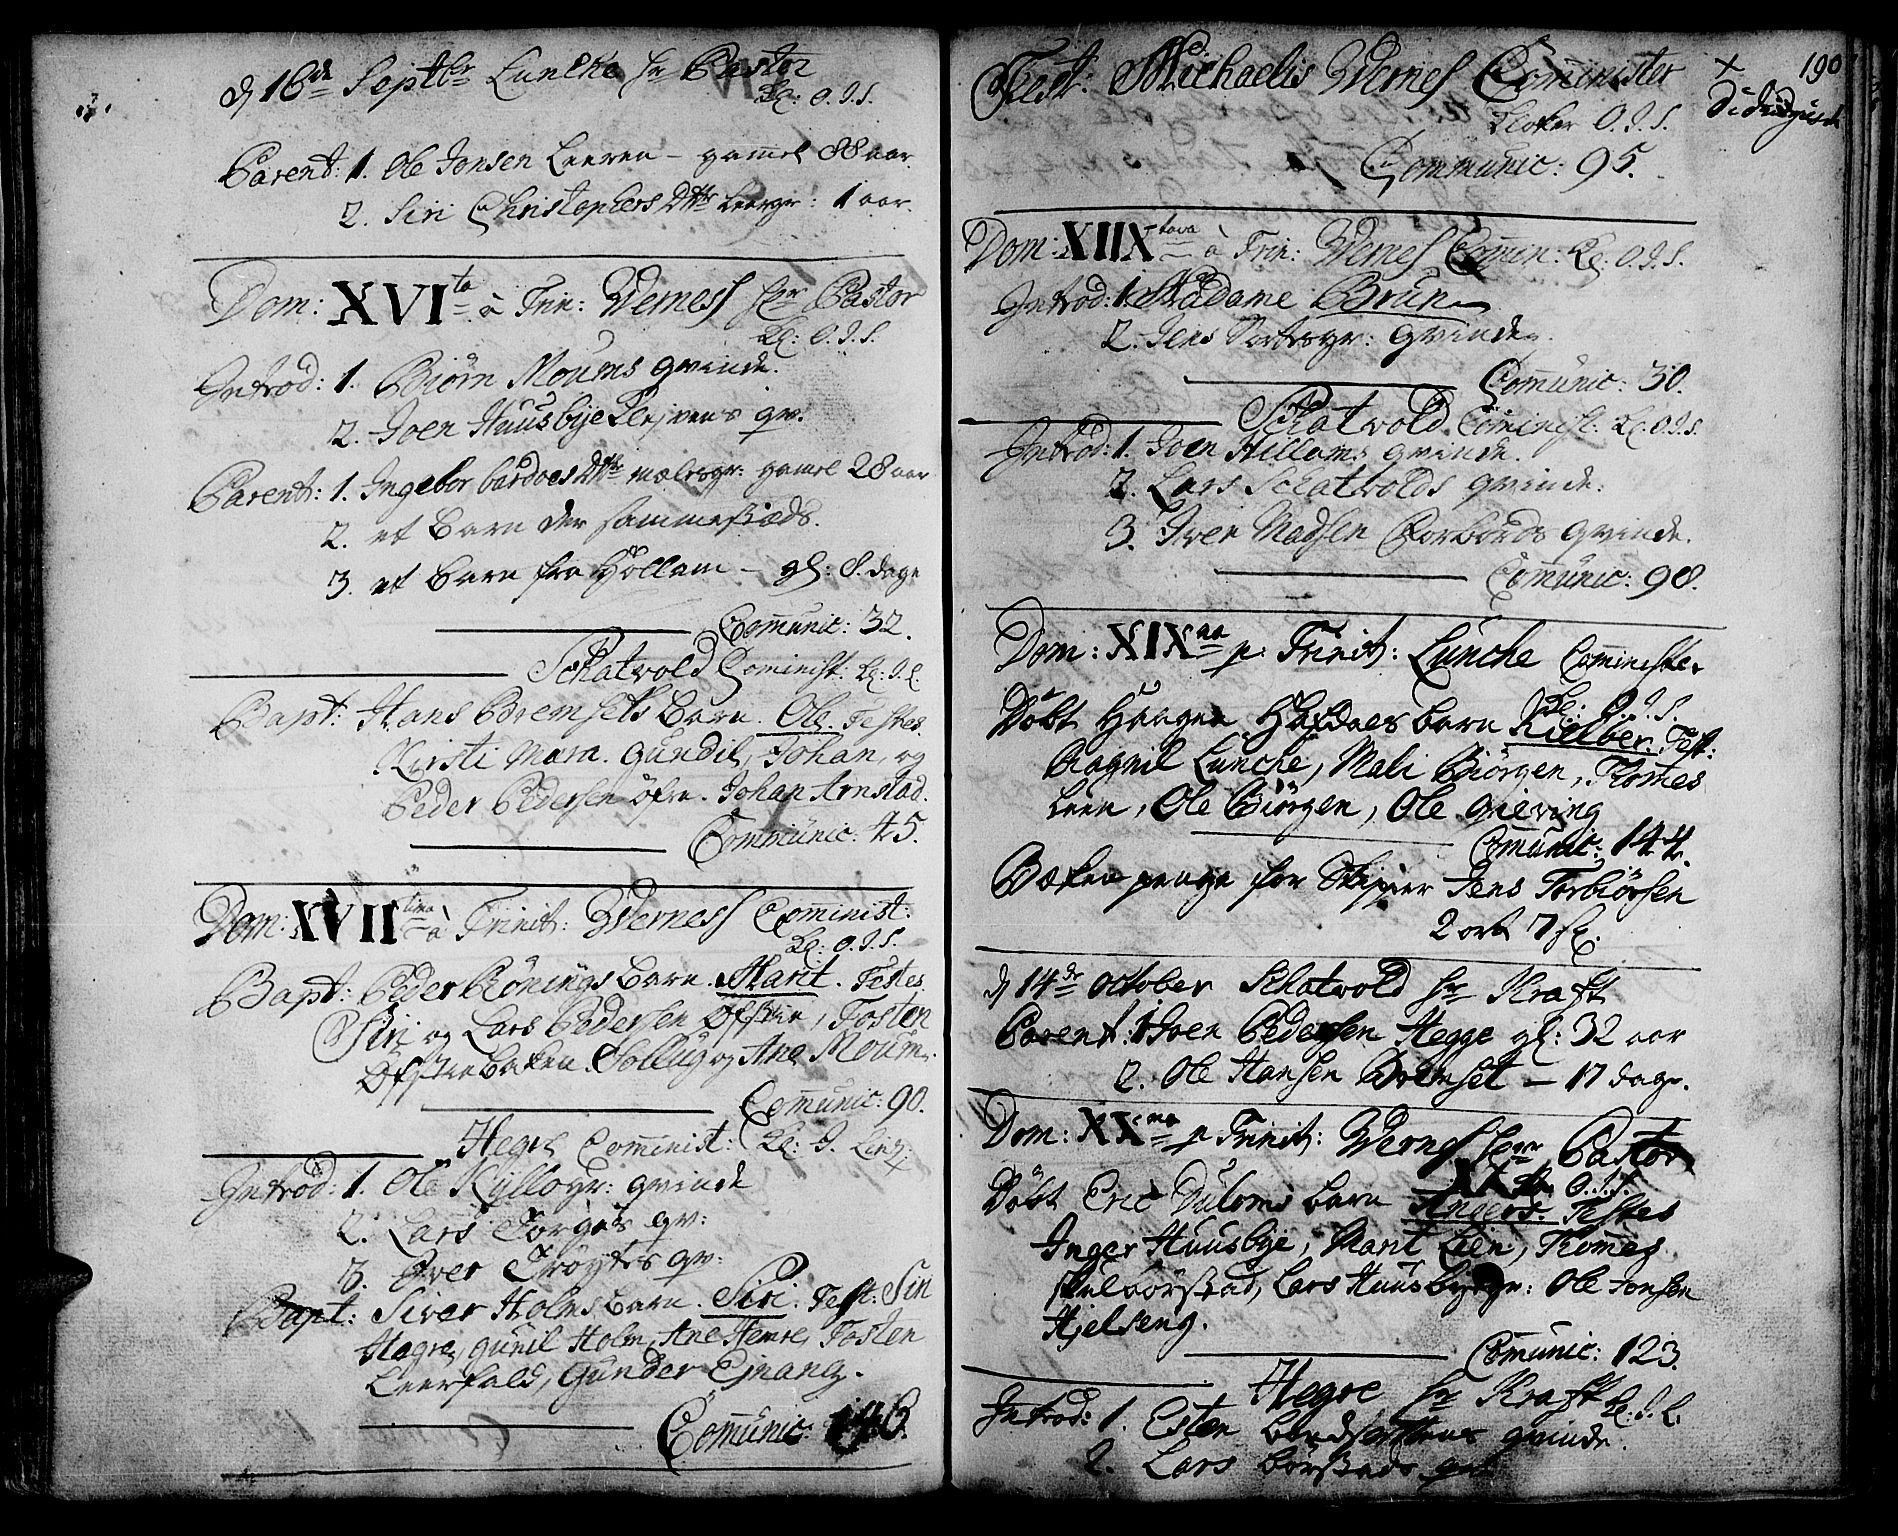 d 16de Septbr Luncke hr Pastor
Kl: O.I.S.
Parent: 1. Ole Jonsen Leeren – gamel 88 aar
2. Siri Christophers Dttr Leergr: 1 aar.
Dom: XVIta à Trin: Wernes hr Pastor
Kl: O.I.S.
Introd: 1. Biörn Moums qvinde.
2. Joen Huusbye qv.
Parent: 1. Ingebor bardoes Dttr mælesgr: gamel 28 aar
2. et Barn der sammestæds.
3. et Barn fra Höllem – gl: 8. dage
Communic: 32.
Schatvold Cominist: Kl: I.L.
Bapt: Hans Bremsets Barn. Ole. Testes
Kirsti Mæra. Gundil, Johan, og
Peder Pedersen öfre. Johan Arnstad.
Communic: 45.
Dom: XVIItima à Trinit: Werness Cominist:
Kl: O.I.S.
Bapt: Peder Rönings Barn. Marit. Testes
Siri og Lars Pedersen Öfstie, Tosten
Öfstiebaken. Sollug og Ane Moum.
Comunic: 90.
Hegre Cominist: Kl: I. Ling
Introd: 1. Ole Kyllogr: qvinde
2. Lars Torges qv:
3. Iver Tröytes qv:
Bapt: Siver Holms Barn. Siri. Test: Siri
Hegre, Gunil Holm, Ane Hemre, Tosten
Leerfald, Gunder Ejnang.
Comunic:
190
Fest: Michaelis Wernes Cominister
Kloker O.I.S.
Communic: 95.
Dom: XIIXtava à Trin: Wernes Comin: Kl: O.I.S.
Introd: 1. Madame Brun
2. Jens Vortesgr: qvinde.
Comunic: 30.
Schatvold Cominist: Kl: O.I.S.
Introd: 1. Joen Hillams qvinde.
2. Lars Schatvolds qvinde.
3. Iver Madsen Forbords qvinde.
Comunic: 98.
Dom: XIXna p. Trinit: Lunche Cominister
Kl: O.I.S.
Döbt Haagen Hofdaes barn Kielber. Test:
Ragnil Lunche, Mali Biörgen, Thomes
Leen, Ole Biörgen, Ole Gieving
Comunic: 144.
Bæken penge for Skipper Jens Torbiörsen
2 ort 7 sk.
d 14de October Schatvold hr Kraft
Parent: 1 Joen Pedersen Hegge gl: 32 aar
2. Ole Hansen Bremset – 17 dage.
Dom: XXma p Trinit: Wernes hr Pastor
O.I.S.
Döbt Eric Dulums barn Anders. Testes
Inger Huusbye, Marit Lien, Thomes
Lars Huusbygr: Ole Jonsen
Hjelseng.
Comunic: 123.
Hegre hr Kraft Kl: I.L.
Introd: 1. Esten qvinde.
2. Lars Börstads qv: